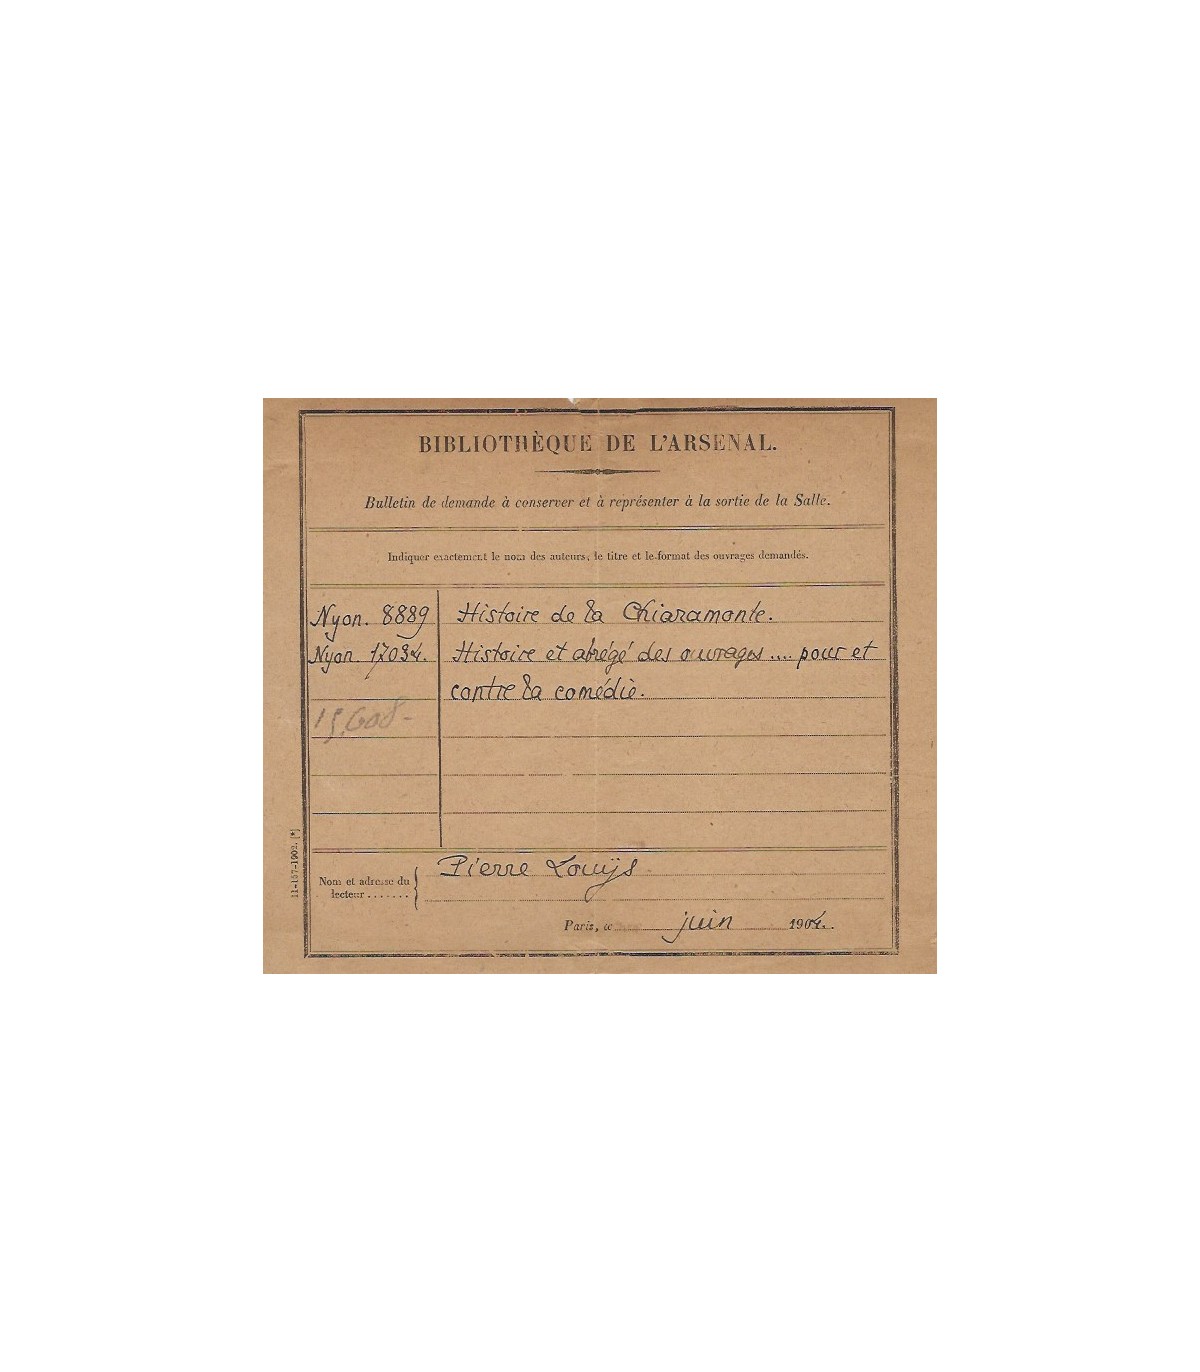 BIBLIOTHÈQUE DE L'ARSENAL.
Bulletin de demande à conserver et à représenter à la sortie de la Salle.
Indiquer exactement le nom des auteurs, le titre et le format des ouvrages demandés.
Nyon. 8889 Histoire de la Chiaramonte.
Nyon. 17034. Histoire et abrégé des ouvrages .... pour et
contre la comédie.
15.608-
Pierre Louÿs
Nom et adresse du
lecteur .......
Paris, le juin 1904.
11-157-1902. [*]